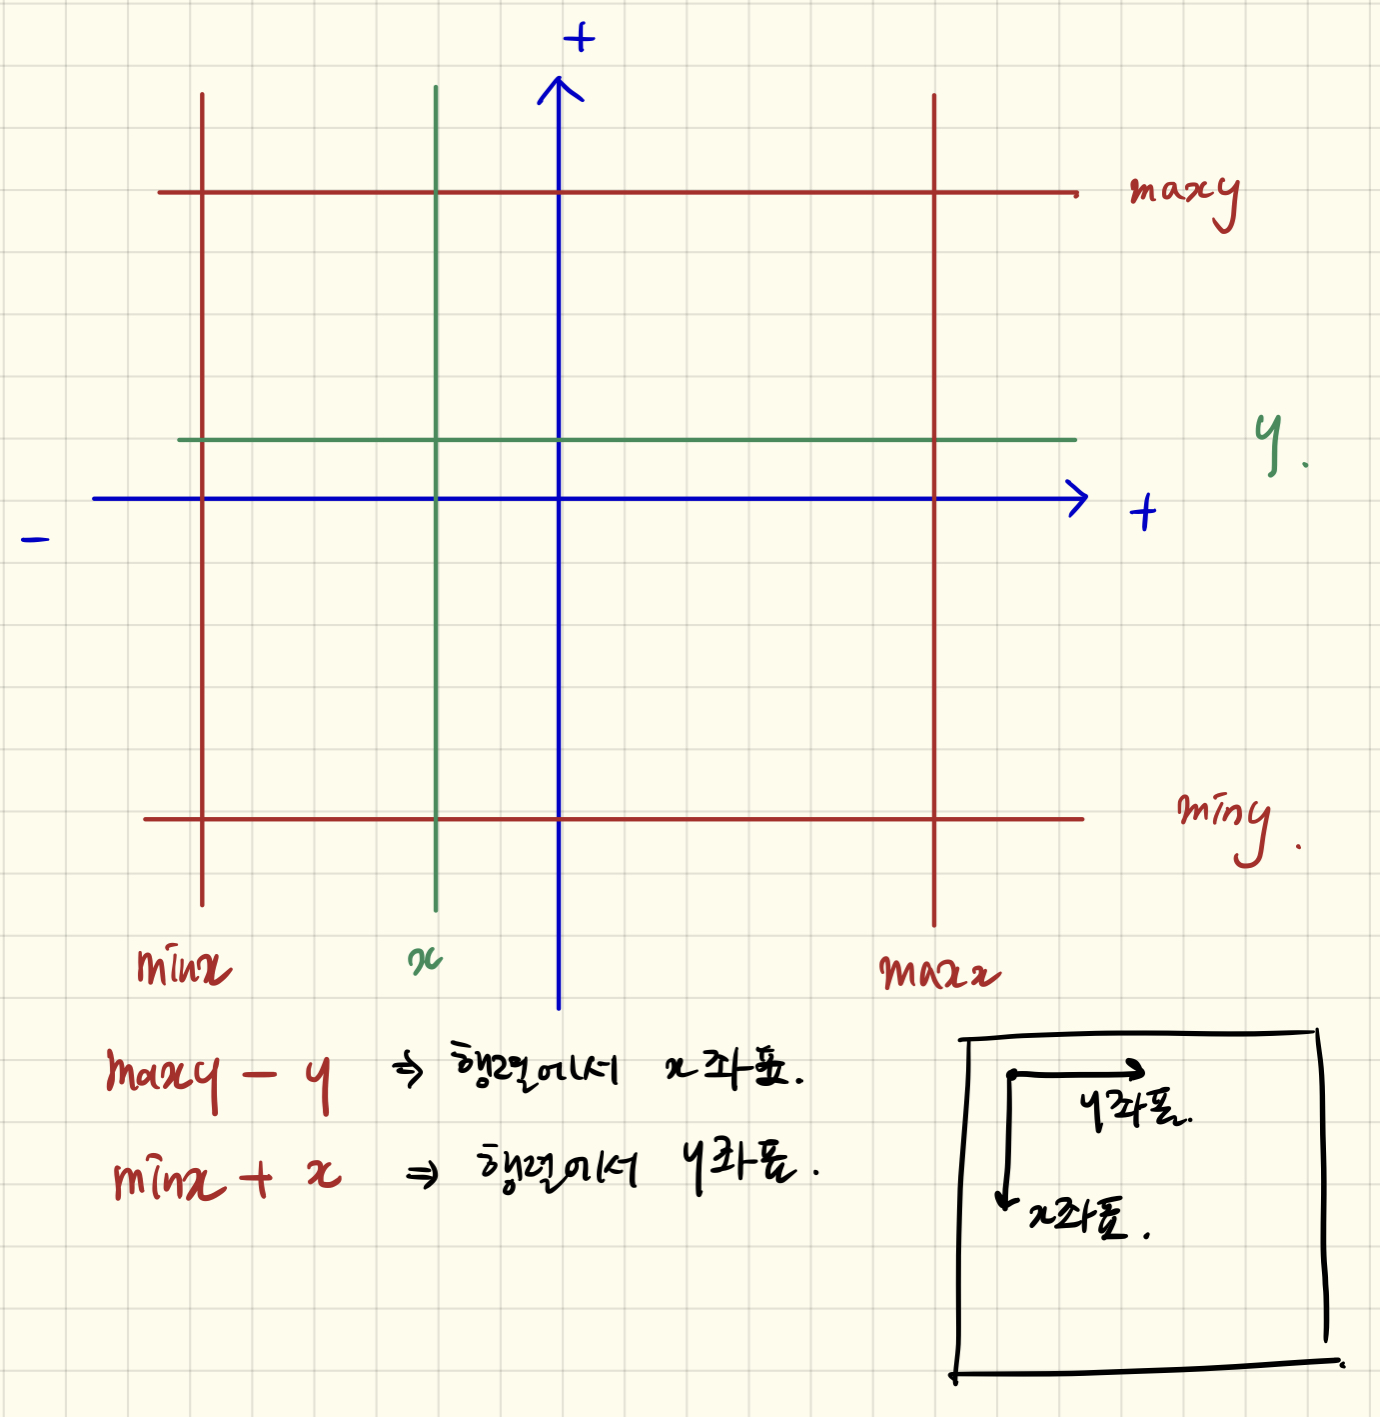 +
maxy
y.
- +
miny.
minx x maxx
maxy - y ⇒ 행렬에서 x좌표.
minx + x ⇒ 행렬에서 y좌표.
y좌표.
x좌표.